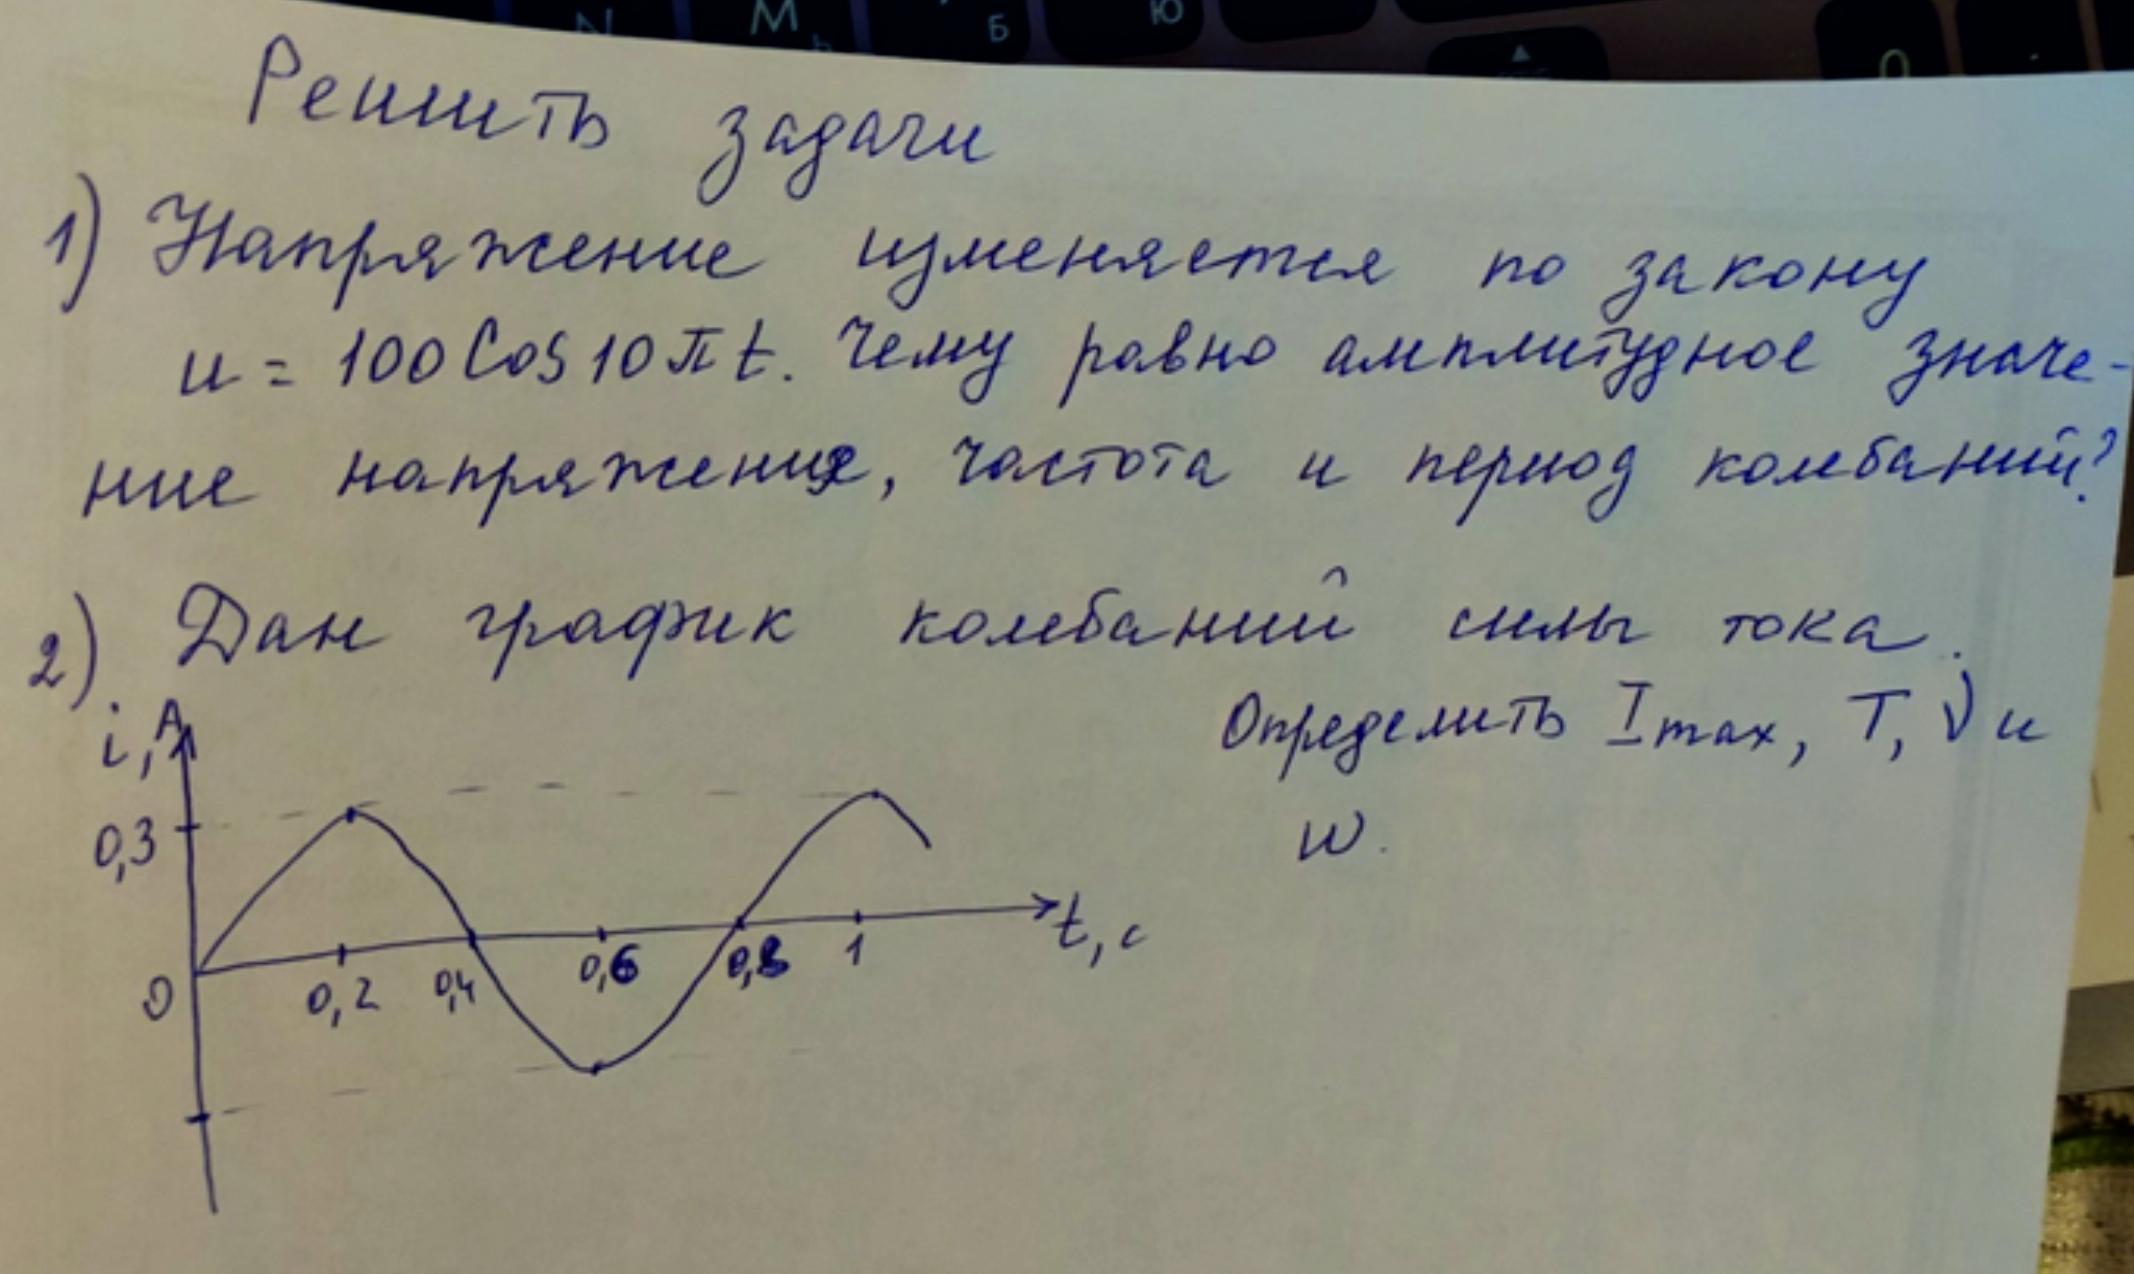 N М Ь Б Ю
Решить задачи
1) Напряжение изменяется по закону
u = 100 Cos 10 π t. Чему равно амплитудное значе-
ние напряжение, частота и период колебаний?
2). Дан график колебаний силы тока.
i, A
Определить Imax, T, ν и
ω.
0,3
t, с
0 0,2 0,4 0,6 0,8 1